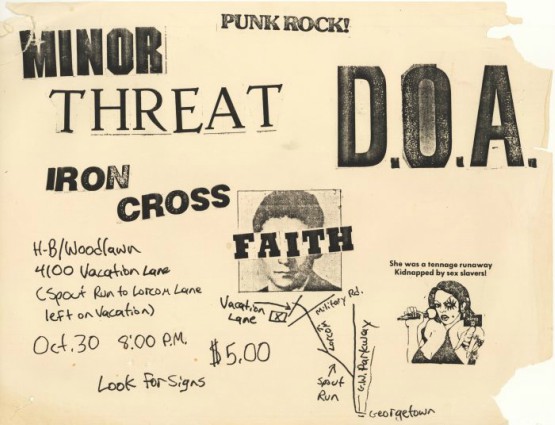 PUNK ROCK!
MINOR
THREAT
D.O.A.
IRON
CROSS
FAITH
H-B/Woodlawn
4100 Vacation Lane
(Spout Run to Lorcom Lane
left on Vacation)
Oct.30 8:00 P.M.
$5.00
Look For Signs
Vacation
Lane
X
Military Rd.
Lorcom
Spout
Run
G.W. Parkway
Georgetown
She was a tennage runaway
Kidnapped by sex slavers!